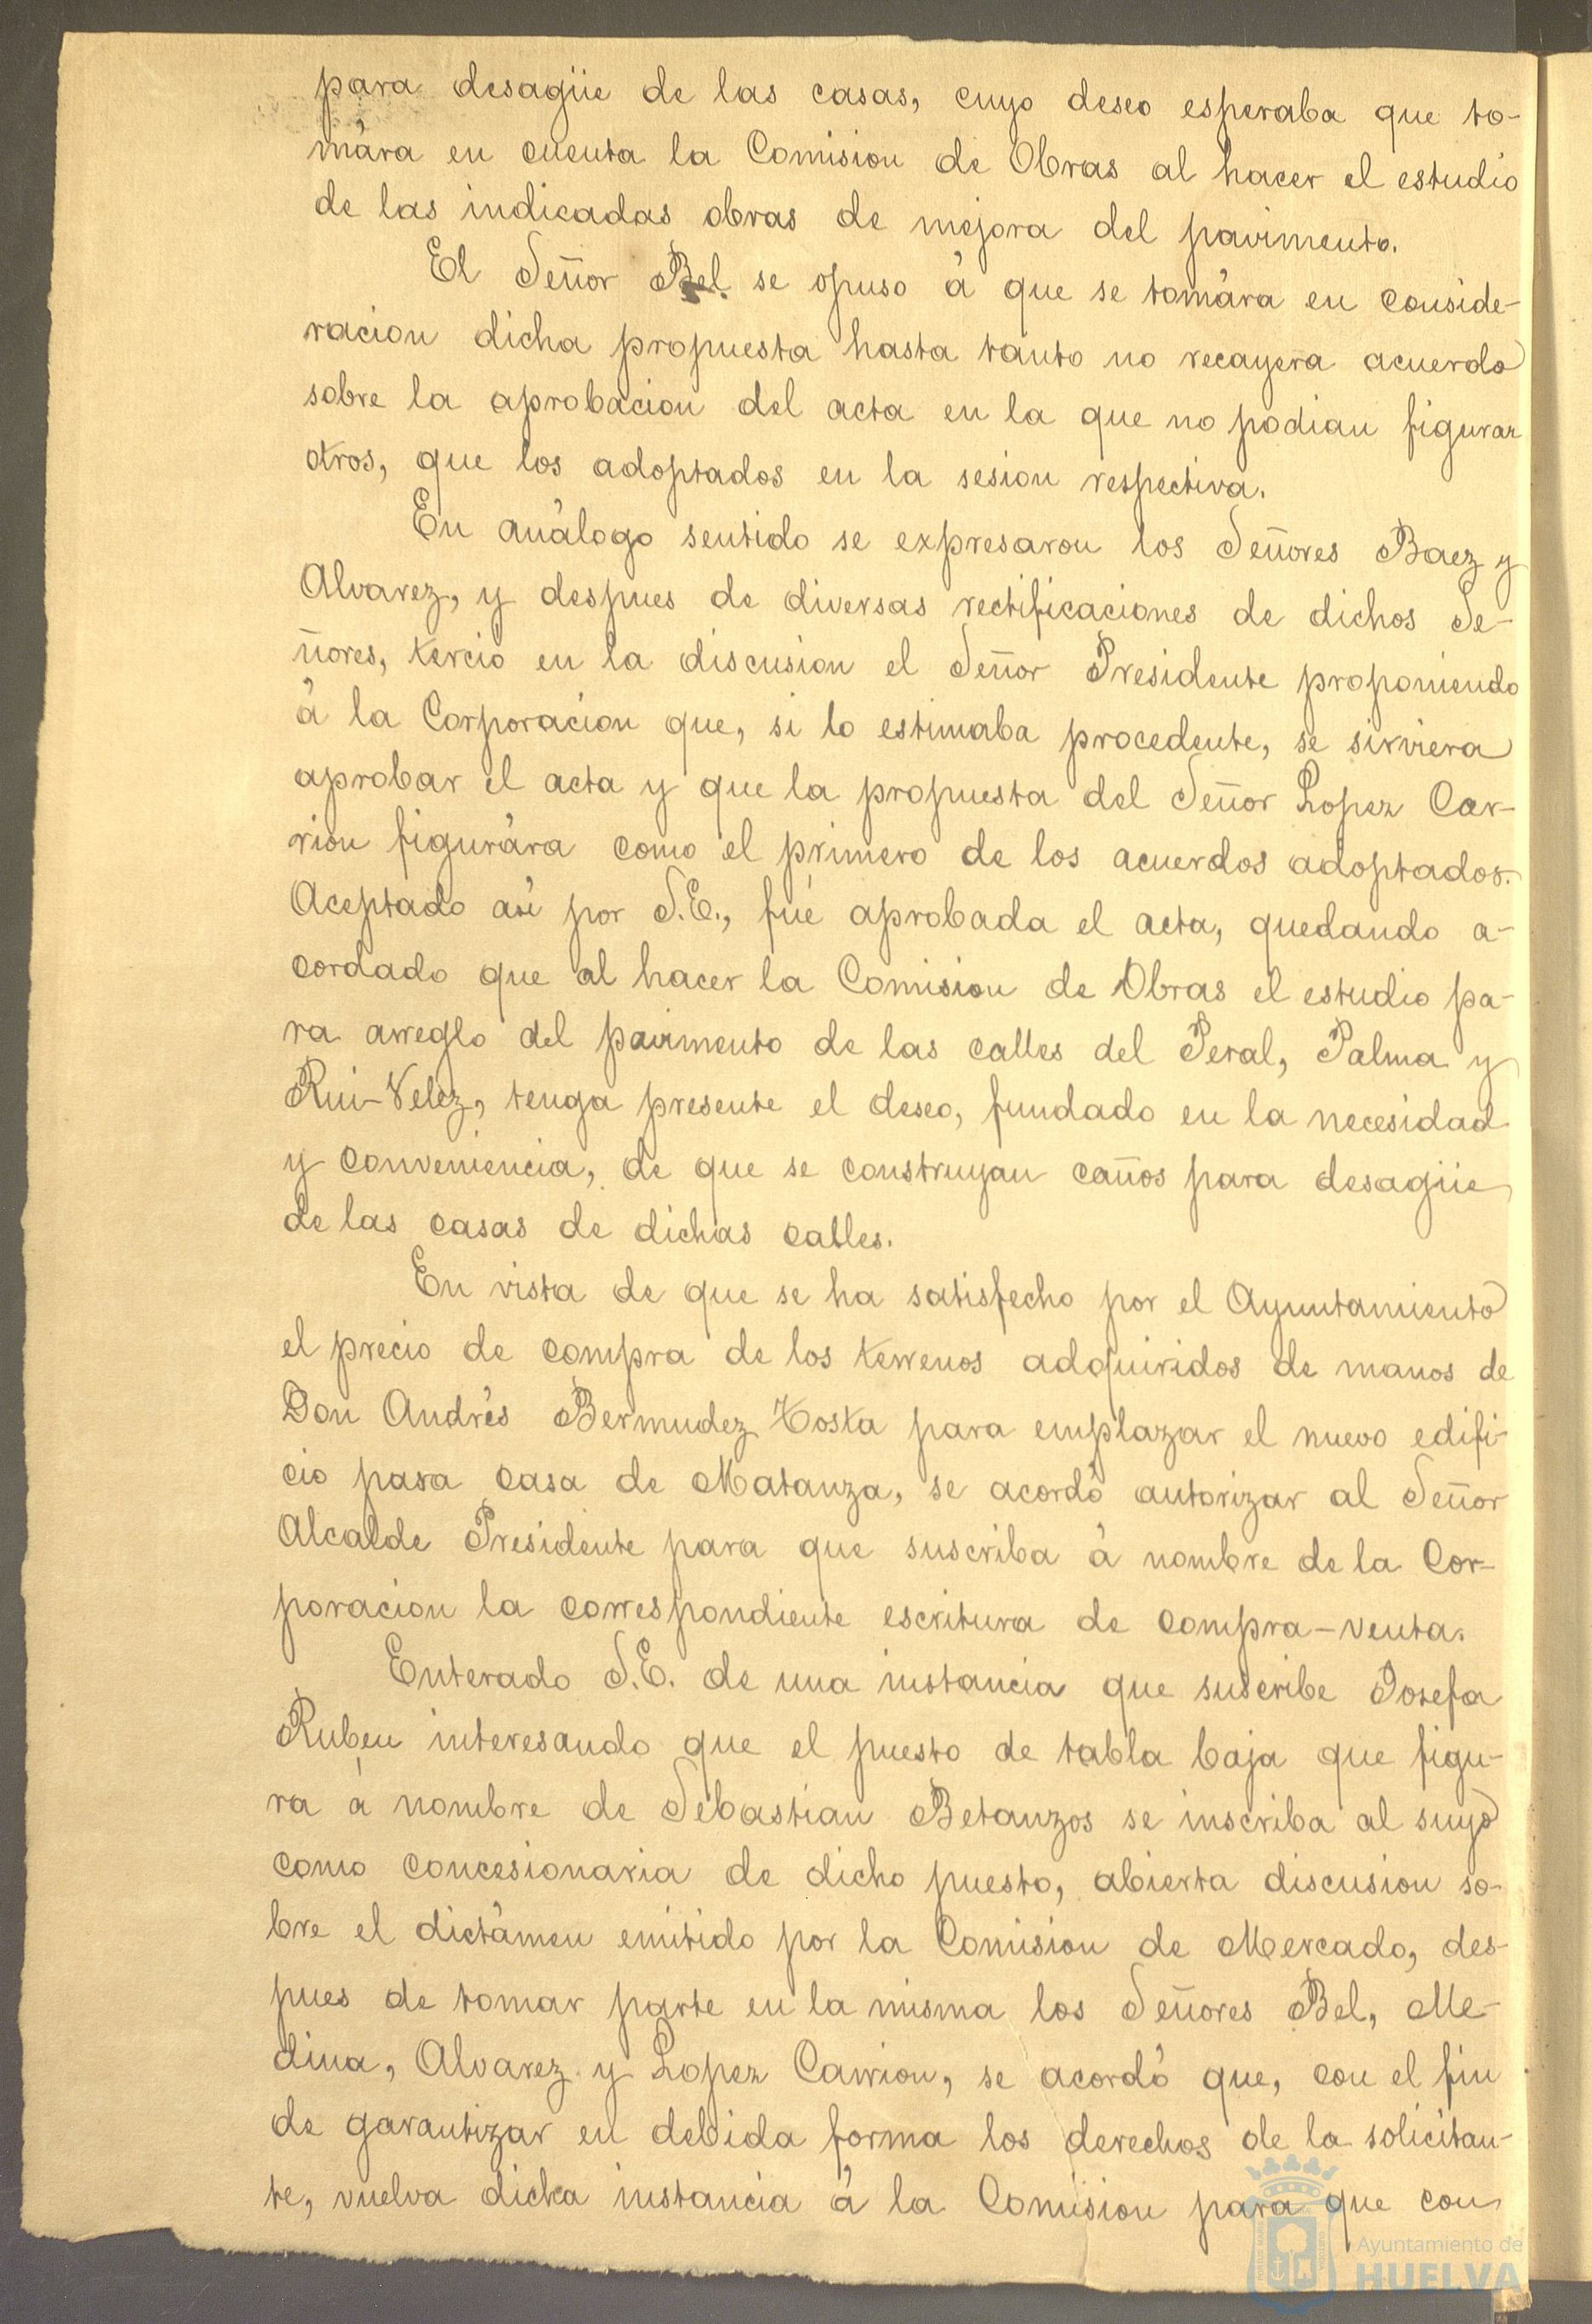 para desagüe de las casas, cuyo deseo esperaba que to-
mára en cuenta la Comision de Obras al hacer el estudio
de las indicadas obras de mejora del pavimento.
El Señor Bel se opuso á que se tomára en conside-
racion dicha propuesta hasta tanto no recayera acuerdo
sobre la aprobacion del acta en la que no podian figurar
otros, que los adoptados en la sesion respectiva.
En análogo sentido se expresaron los Señores Baez y
Alvarez, y despues de diversas rectificaciones de dichos Se-
ñores, tercio en la discusion el Señor Presidente proponiendo
á la Corporacion que, si lo estimaba procedente, se sirviera
aprobar el acta y que la propuesta del Señor Lopez Car-
rion figurára como el primero de los acuerdos adoptados.
Aceptado asi por S.E., fué aprobada el acta, quedando a-
cordado que al hacer la Comision de Obras el estudio pa-
ra arreglo del pavimento de las calles del Peral, Palma y
Rui-Velez, tenga presente el deseo, fundado en la necesidad
y conveniencia, de que se construyan caños para desagüe
de las casas de dichas calles.
En vista de que se ha satisfecho por el Ayuntamiento
el precio de compra de los terrenos adquiridos de manos de
Don Andrés Bermudez Tosta para emplazar el nuevo edifi-
cio para casa de Matanza, se acordó autorizar al Señor
Alcalde Presidente para que suscriba á nombre de la Cor-
poracion la correspondiente escritura de compra-venta.
Enterado S.E. de una instancia que suscribe Josefa
Ruben interesando que el puesto de tabla baja que figu-
ra á nombre de Sebastian Betanzos se inscriba al suyo
como concesionaria de dicho puesto, abierta discusion so-
bre el dictámen emitido por la Comision de Mercado, des-
pues de tomar parte en la misma los Señores Bel, Me-
dina, Alvarez y Lopez Carrion, se acordó que, con el fin
de garantizar en debida forma los derechos de la solicitan-
te, vuelva dicha instancia á la Comision para que con
Ayuntamiento de
HUELVA